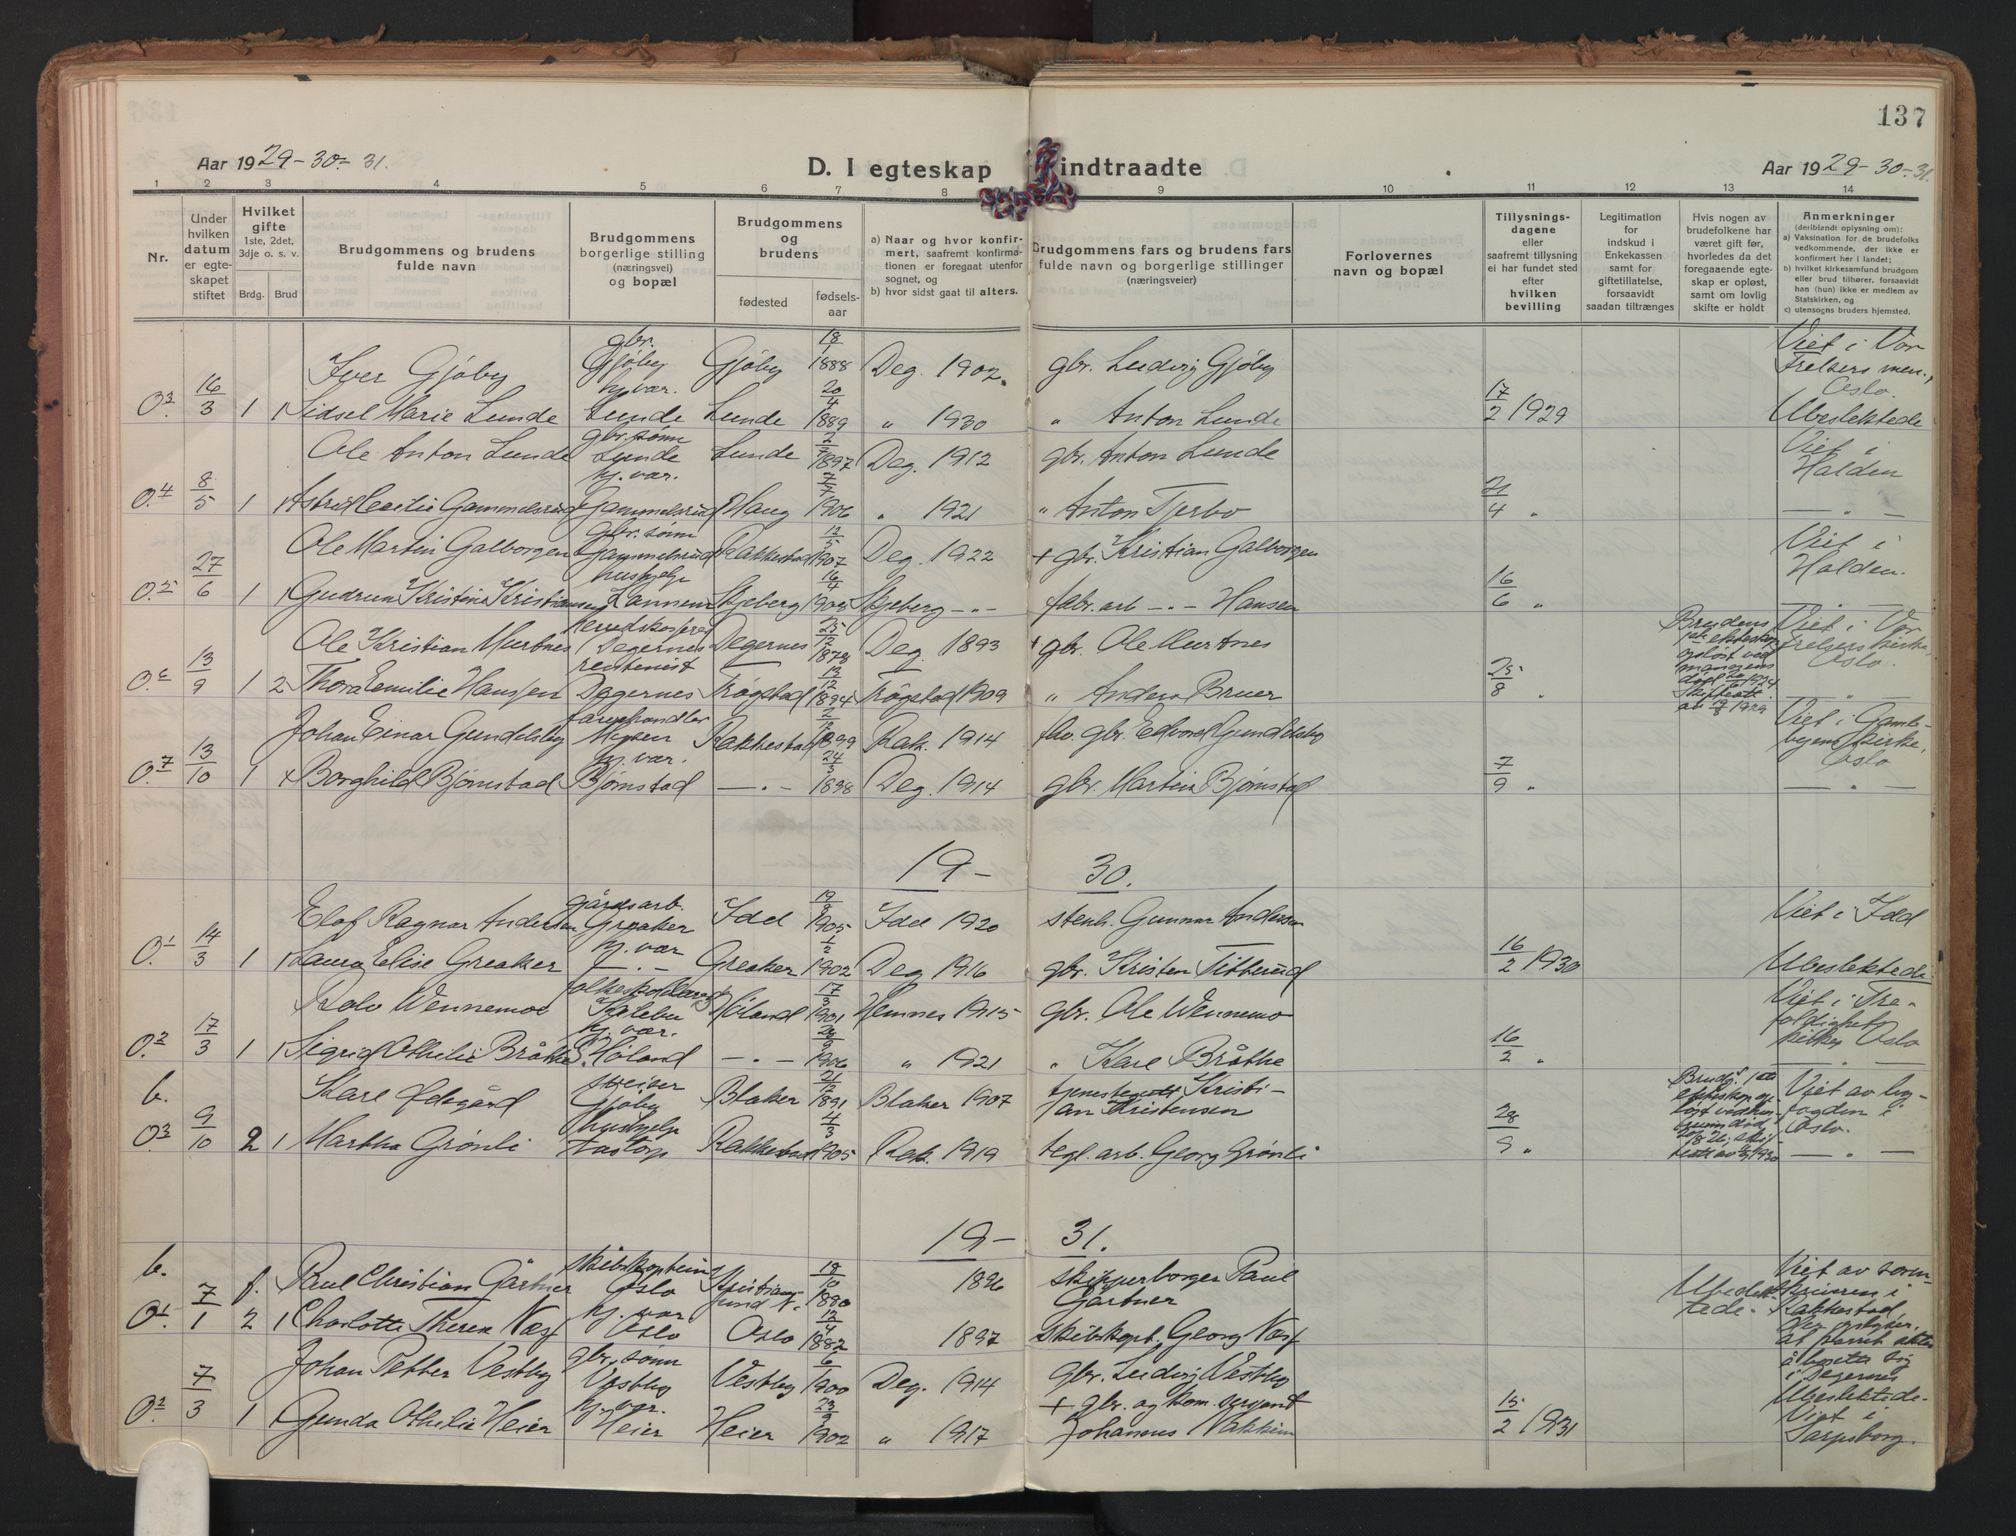 137
Aar 1929-30-31.
D. I egteskap indtraadte
Aar 1929-30-31.
1 2 3 4 5 6 7 8 9 10 11 12 13 14
Nr.
Under hvilken datum er egteskapet stiftet
Hvilket gifte 1ste, 2det, 3dje o. s. v.
Brdg. Brud
Brudgommens og brudens fulde navn
Brudgommens borgerlige stilling (næringsvei) og bopæl
Brudgommens og brudens
fødested
fødsels-aar
a) Naar og hvor konfirmert, saafremt konfirmationen er foregaat utenfor sognet, og
b) hvor sidst gaat til alters.
Brudgommens fars og brudens fars fulde navn og borgerlige stillinger (næringsveier)
Forlovernes navn og bopæl
Tillysningsdagene eller saafremt tillysning ei har fundet sted efter hvilken bevilling
Legitimation for indskud i Enkekassen samt for giftetillatelse, forsaavidt saadan tiltrænges
Hvis nogen av brudefolkene har været gift før, hvorledes da det foregaaende egteskap er opløst, samt om lovlig skifte er holdt
Anmerkninger
(deriblandt oplysning om):
a) Vaksination for de brudefolks vedkommende, der ikke er konfirmert her i landet;
b) hvilket kirkesamfund brudgom eller brud tilhører, forsaavidt han (hun) ikke er medlem av Statskirken, og
c) utensogns bruders hjemsted.
Iver Gjøby gbr. Gjøby Gjøby 1888 Deg. 1902. gbr. Ludvig Gjøby Viet i Vor Frelsers men., Oslo.
O.3 16/3 1 1 Sidsel Marie Lunde hj. vær. Lunde Lunde 20/4 1889 " 1930 " Anton Lunde 17/2 1929 Ubeslektede
Ole Anton Lunde gbr. sønn Lunde Lunde 1897 Deg. 1912 gbr. Anton Lunde Viet i Halden
O.4 8/5 1 1 Gammelsrud hj. vær. Gammelsrud Ø Haug 1906 " 1921 " Anton Tjerbo 21/4 " — " —
Ole Martin Galborgen gbr. sønn Gammelsrud Rakkestad 12/5 1907 Deg. 1922 + gbr. Kristian Galborgen Viet i Halden.
O.5 27/6 1 1 Gudrun Kristine Kristiansen hushjelp Skjeberg 16/4 Skjeberg — " — fabr. arb — " — Hansen 16/6 "
Ole Kristian Murtnes Degernes Degernes 25/12 1878 Deg. 1893 + gbr. Ole Murtnes Viet i Vor Frelsers kirke, Oslo.
O.6 13/9 1 2 Thora Emilie Hansen rentenist Degernes Trøgstad 13/12 1894 Trøgstad 1909 " Anders Bruer 25/8 " — " —
Johan Einar Gundelsby Mysen Rakkestad 1899 Rak. 1914 gbr. Edvard Gundelsby Viet i Gamlebyens kirke, Oslo
O.7 13/10 1 1 Borghild Bjørnstad hj. vær. Bjørnstad — " — 24/3 1898 Deg. 1914 gbr. Martin Bjørnstad 7/9 " — " —
19- 30.
Elof Ragnar Andersen gårdsarb. Greaker Idd 1905 Idd 1920 stenh. Gunnar Andersen Viet i Idd
O.1 14/3 1 1 Laura Elise Greaker hj. vær — " — Greaker 1/2 1902 Deg 1916 gbr. Kristen Titterud 16/2 1930 Ubeslektede
Rolv Wennemoe Høland 17/3 1901 Hemnes 1915 gbr. Ole Wennemo Viet i Trefoldighetskirken, Oslo
O.2 17/3 1 1 Sigrid Othilie Bråthe hj. vær. Høland — " — 1906 " 1921 " Karl Bråthe 16/2 " — " —
b. Karl Ødegård sveiser Gjøby Blaker 21/12 1891 Blaker 1907 Kristian Kristensen Viet av byfogden i Oslo.
O.3 9/10 2 1 Martha Grønli hushjelp Tastorp Rakkestad 4/3 1905 Rak. 1919 tegl. arb. Georg Grønli 28/9 " — " —
19- 31.
b. f. Paul Christian Gärtner skibskaptein Oslo Kristiansund N. 18/10 1880 1896 skipperborger Paul Gärtner
O.1 7/1 2 1 Charlotte Theresa Næss hj. vær Oslo Oslo 12/4 1882 1897 skibskapt. Georg Næss Ubeslektede. Viet av sorenskriveren i Rakkestad,
Johan Petter Vestby gbr. sønn Vestby Vestby 6 1900 Deg. 1914 gbr. Ludvig Vestby i Degernes
O.2 7/3 1 1 Gunda Othilie Heier hj. vær. Heier Heier 23/9 1902 " 1917 + gbr. og kom. sersjant Johannes Nakkim 15/2 1931 Ubeslektede. Viet i Sarpsborg.